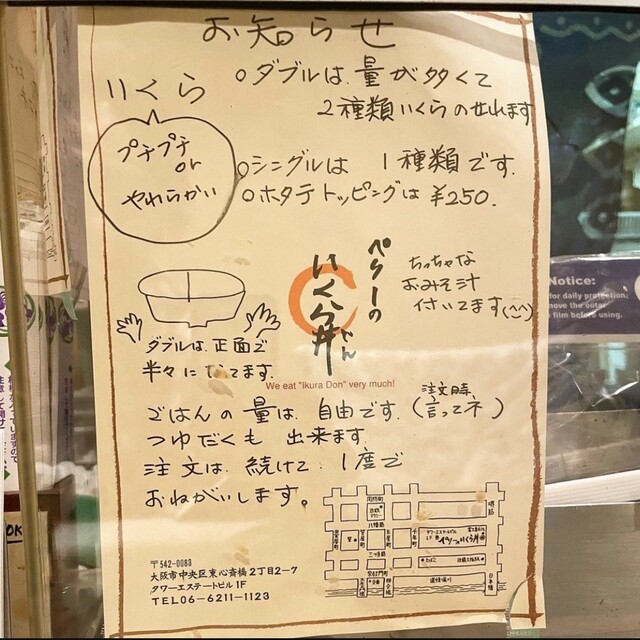 お知らせ
いくら
プチプチ
or
やわらかい
○ダブルは、量が多くて
2種類いくらのせれます
○シングルは 1種類です。
○ホタテトッピングは¥250.
ぺリーの
いくら丼
どん
We eat "Ikura Don" very much!
ちっちゃな
おみそ汁
付いてます(^^)
ダブルは、正面で
半々に
てます。
ごはんの量は、自由です。(注文時、言ってネ)
つゆだくも 出来ます。
注文は、続けて、1度で
おねがいします。
周防町
八幡筋
三ツ寺筋
道頓堀川
堺筋
〒542-0083
大阪市中央区東心斎橋2丁目2-7
タワーエステートビル1F
TEL06-6211-1123
Notice:
for daily protection,
move the outer
film before using.
OK